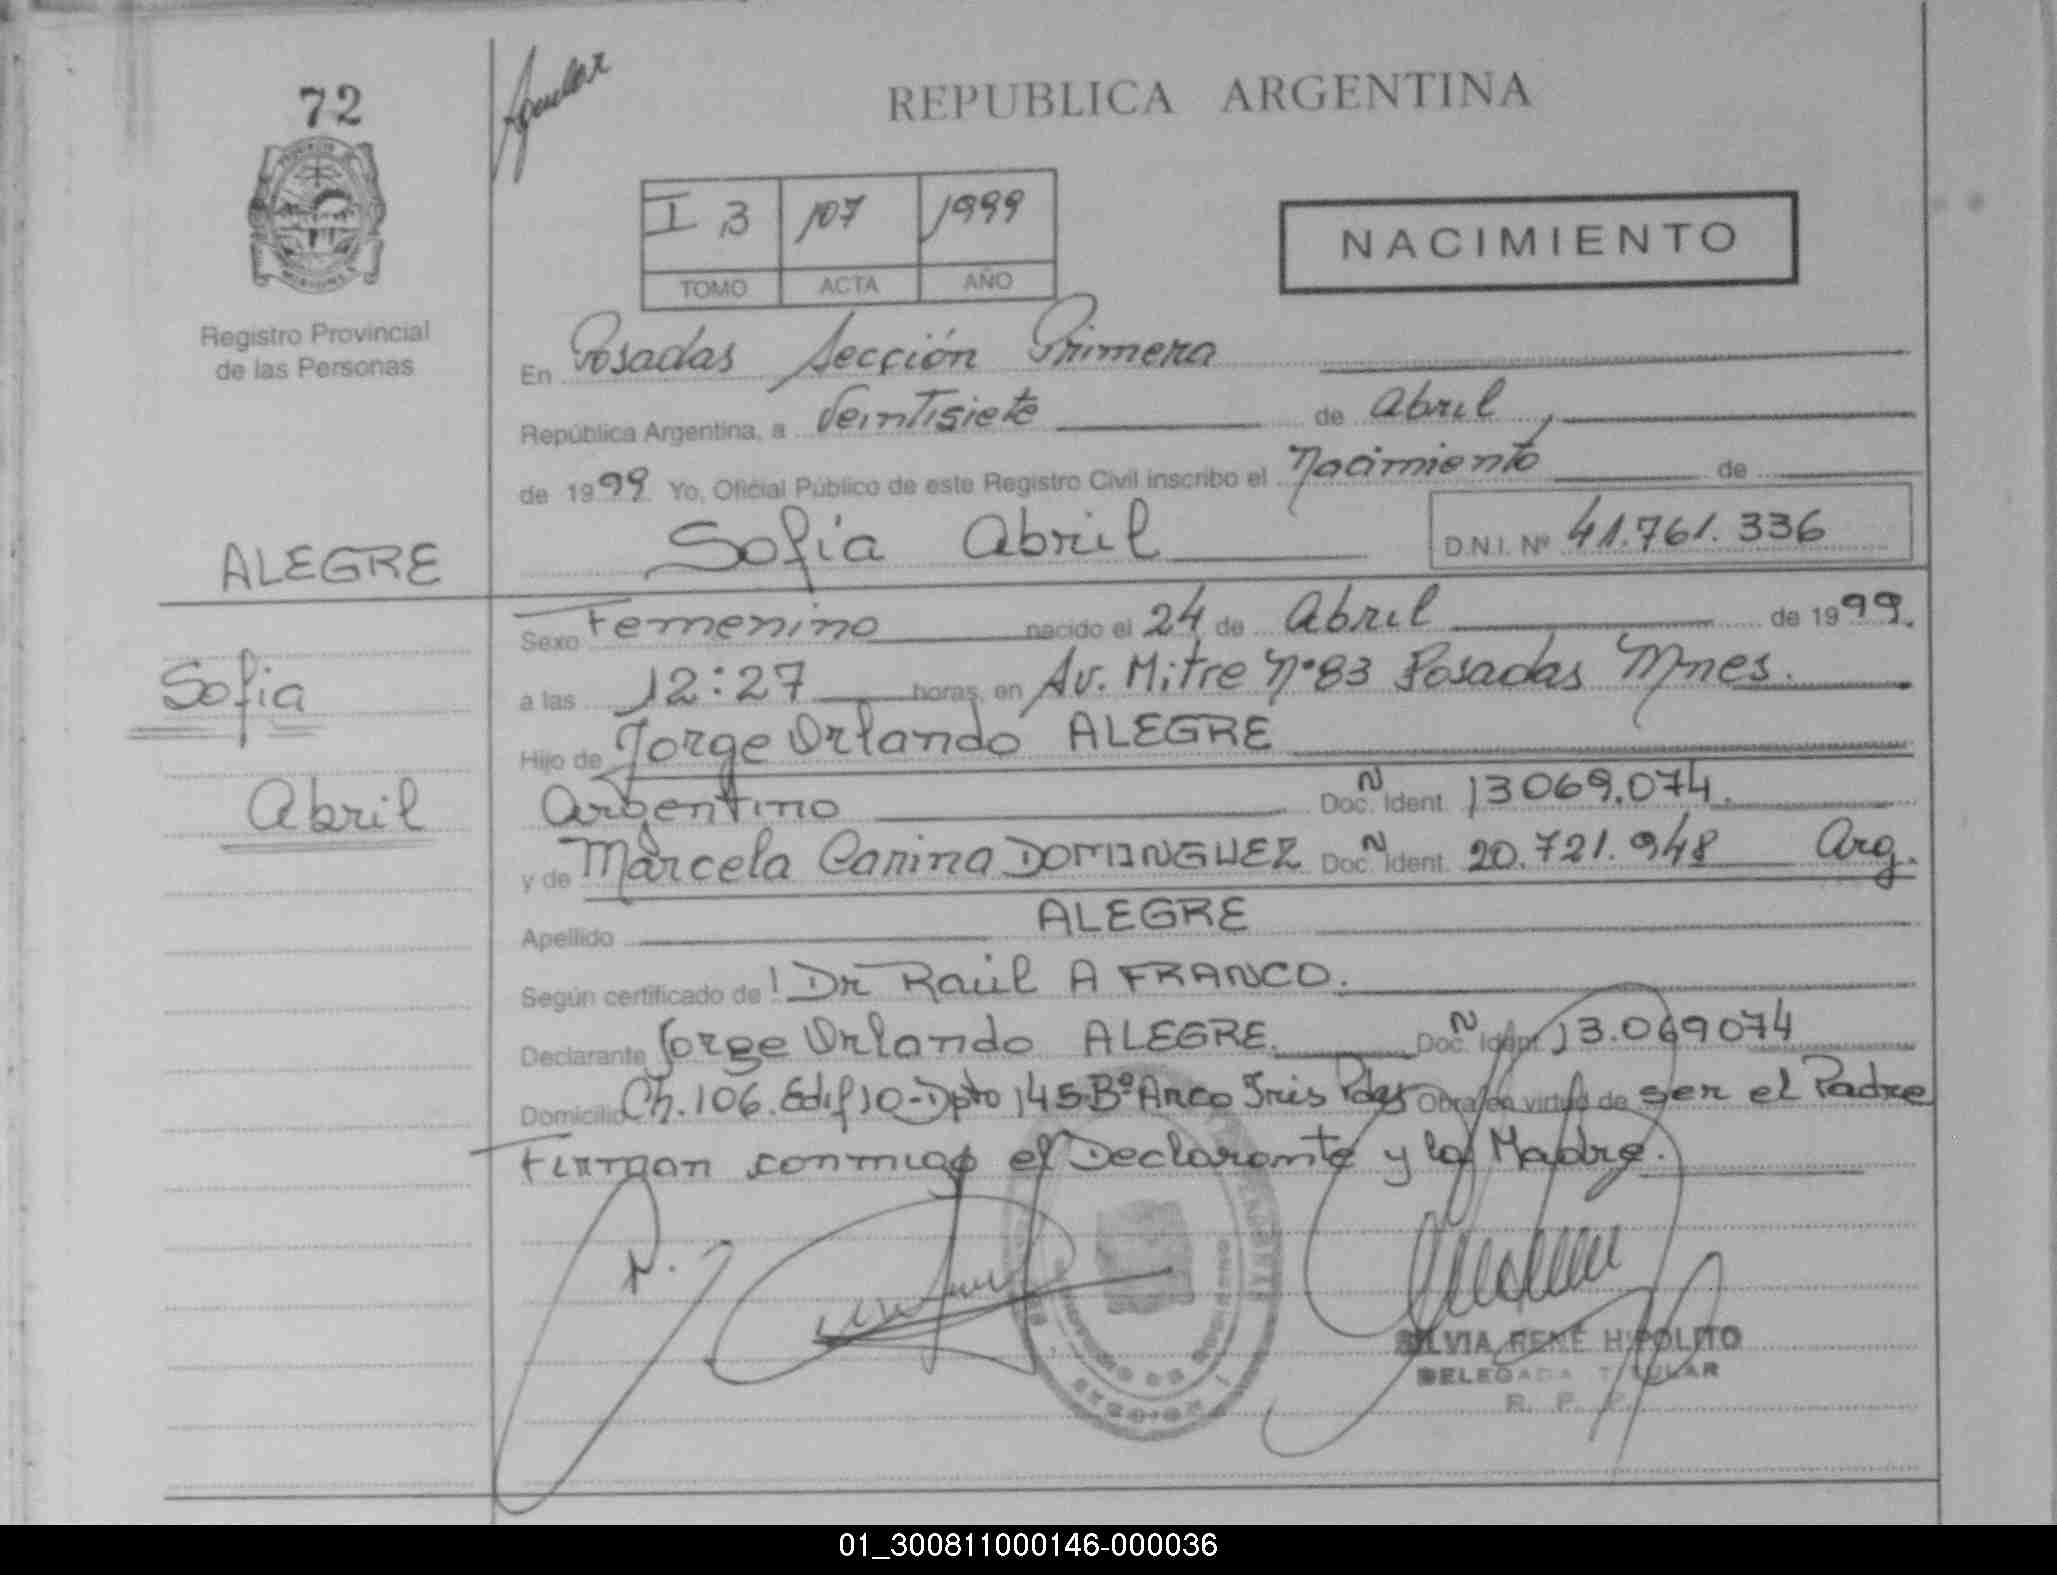 72
Registro Provincial
de las Personas
REPUBLICA ARGENTINA
I 3 107 1999
TOMO ACTA AÑO
NACIMIENTO
En Posadas Sección Primera
República Argentina, a Veintisiete de Abril,
de 1999 Yo, Oficial Público de este Registro Civil inscribo el Nacimiento de
ALEGRE
Sofia Abril
D.N.I. Nº 41.761.336
Sofia
Abril
Sexo Femenino nacido el 24 de Abril de 1999.
a las 12:27 horas, en Av. Mitre Nº 83 Posadas Mnes.
Hijo de Jorge Orlando ALEGRE
Argentino Doc. N Ident. 13069.074.
y de Marcela Carina DOMINGUEZ Doc. N Ident. 20.721.948 Arg.
Apellido ALEGRE
Según certificado de: Dr Raúl A FRANCO.
Declarante Jorge Orlando ALEGRE. Doc. N Ident. 13.069074
Domicilio Ch. 106. Edif 10-Dpto 145 Bº Arco Iris Pdas Obra en virtud de ser el Padre
Firman conmigo el Declarante y la Madre.
SILVIA RENE HIPOLITO
DELEGADA TITULAR
R. P. P.
01_300811000146-000036